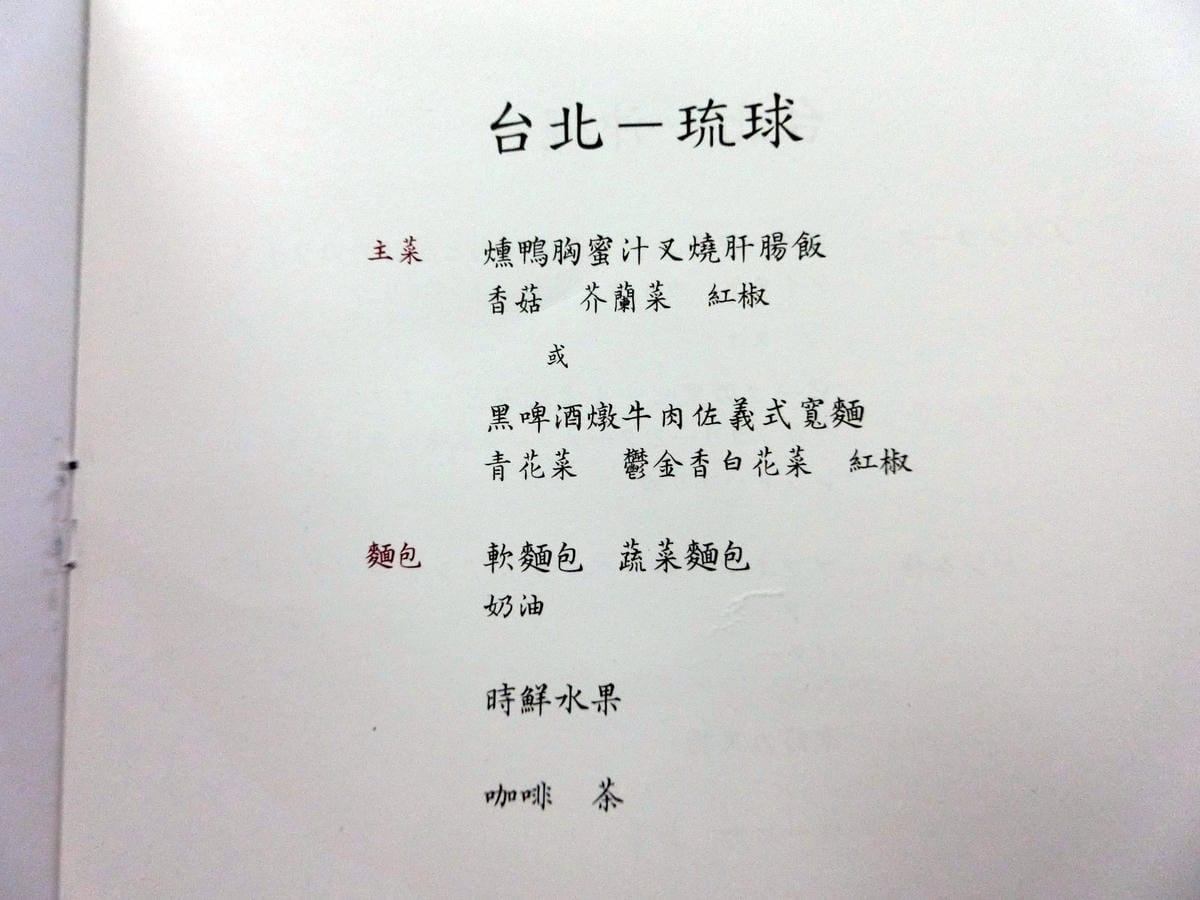 台北－琉球
主菜 燻鴨胸蜜汁叉燒肝腸飯
香菇 芥蘭菜 紅椒
或
黑啤酒燉牛肉佐義式寬麵
青花菜 鬱金香白花菜 紅椒
麵包 軟麵包 蔬菜麵包
奶油
時鮮水果
咖啡 茶